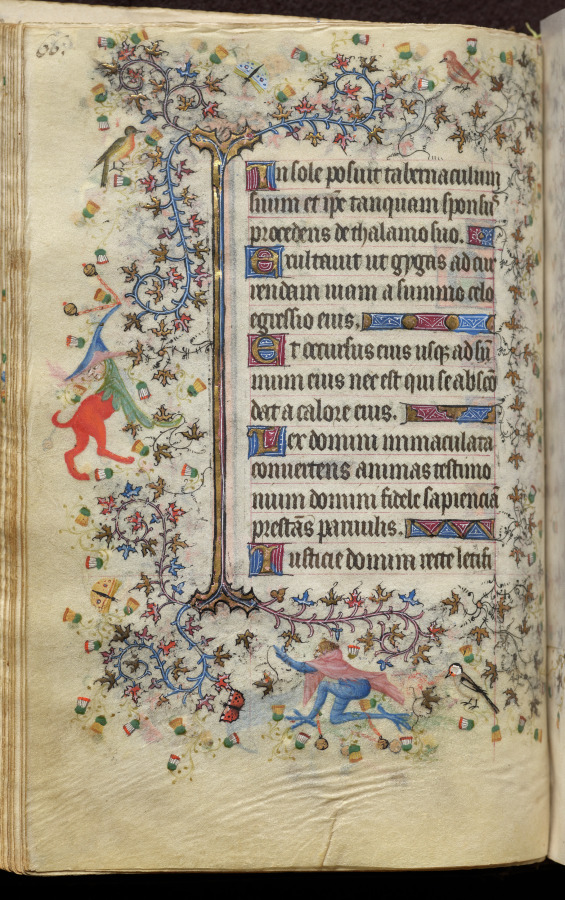 66.
In sole posuit tabernaculum
suum et ip̄e tanquam sponsꝰ
procedens de thalamo suo.
Exultauit ut gygas ad cur
rendam uiam a summo celo
egressio eius.
Et occursus eius usqꝫ ad sū
mum eius nec est qui se absco
dat a calore eius.
Lex domini immaculata
conuertens animas testimo
nium domini fidele sapienciā
prestās paruulis.
Iusticie domini recte letifi